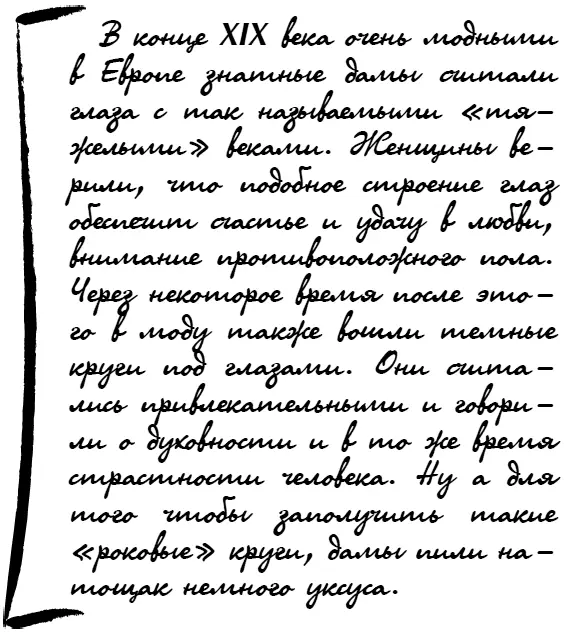 В конце XIX века очень модными
в Европе знатные дамы считали
глаза с так называемыми «тя-
желыми» веками. Женщины ве-
рили, что подобное строение глаз
обеспечит счастье и удачу в любви,
внимание противоположного пола.
Через некоторое время после это-
го в моду также вошли темные
круги под глазами. Они счита-
лись привлекательными и говори-
ли о духовности и в то же время
страстности человека. Ну а для
того чтобы заполучить такие
«роковые» круги, дамы пили на-
тощак немного уксуса.